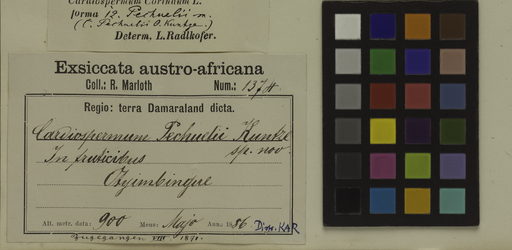 Cardiospermum Corindum L.
forma 12. Pechuelii m.
(C. Pechuelii O. Kuntze.)
Determ. L. Radlkofer.
Exsiccata austro-africana
Coll.: R. Marloth Num.: 1374.
Regio: terra Damaraland dicta.
Cardiospermum Pechuelii Kuntze
In fruticibus sp. nov.
Otyimbingue
Alt. metr. data: 900 Mens: Majo Ann.: 1886
zugegangen VIII 1890.